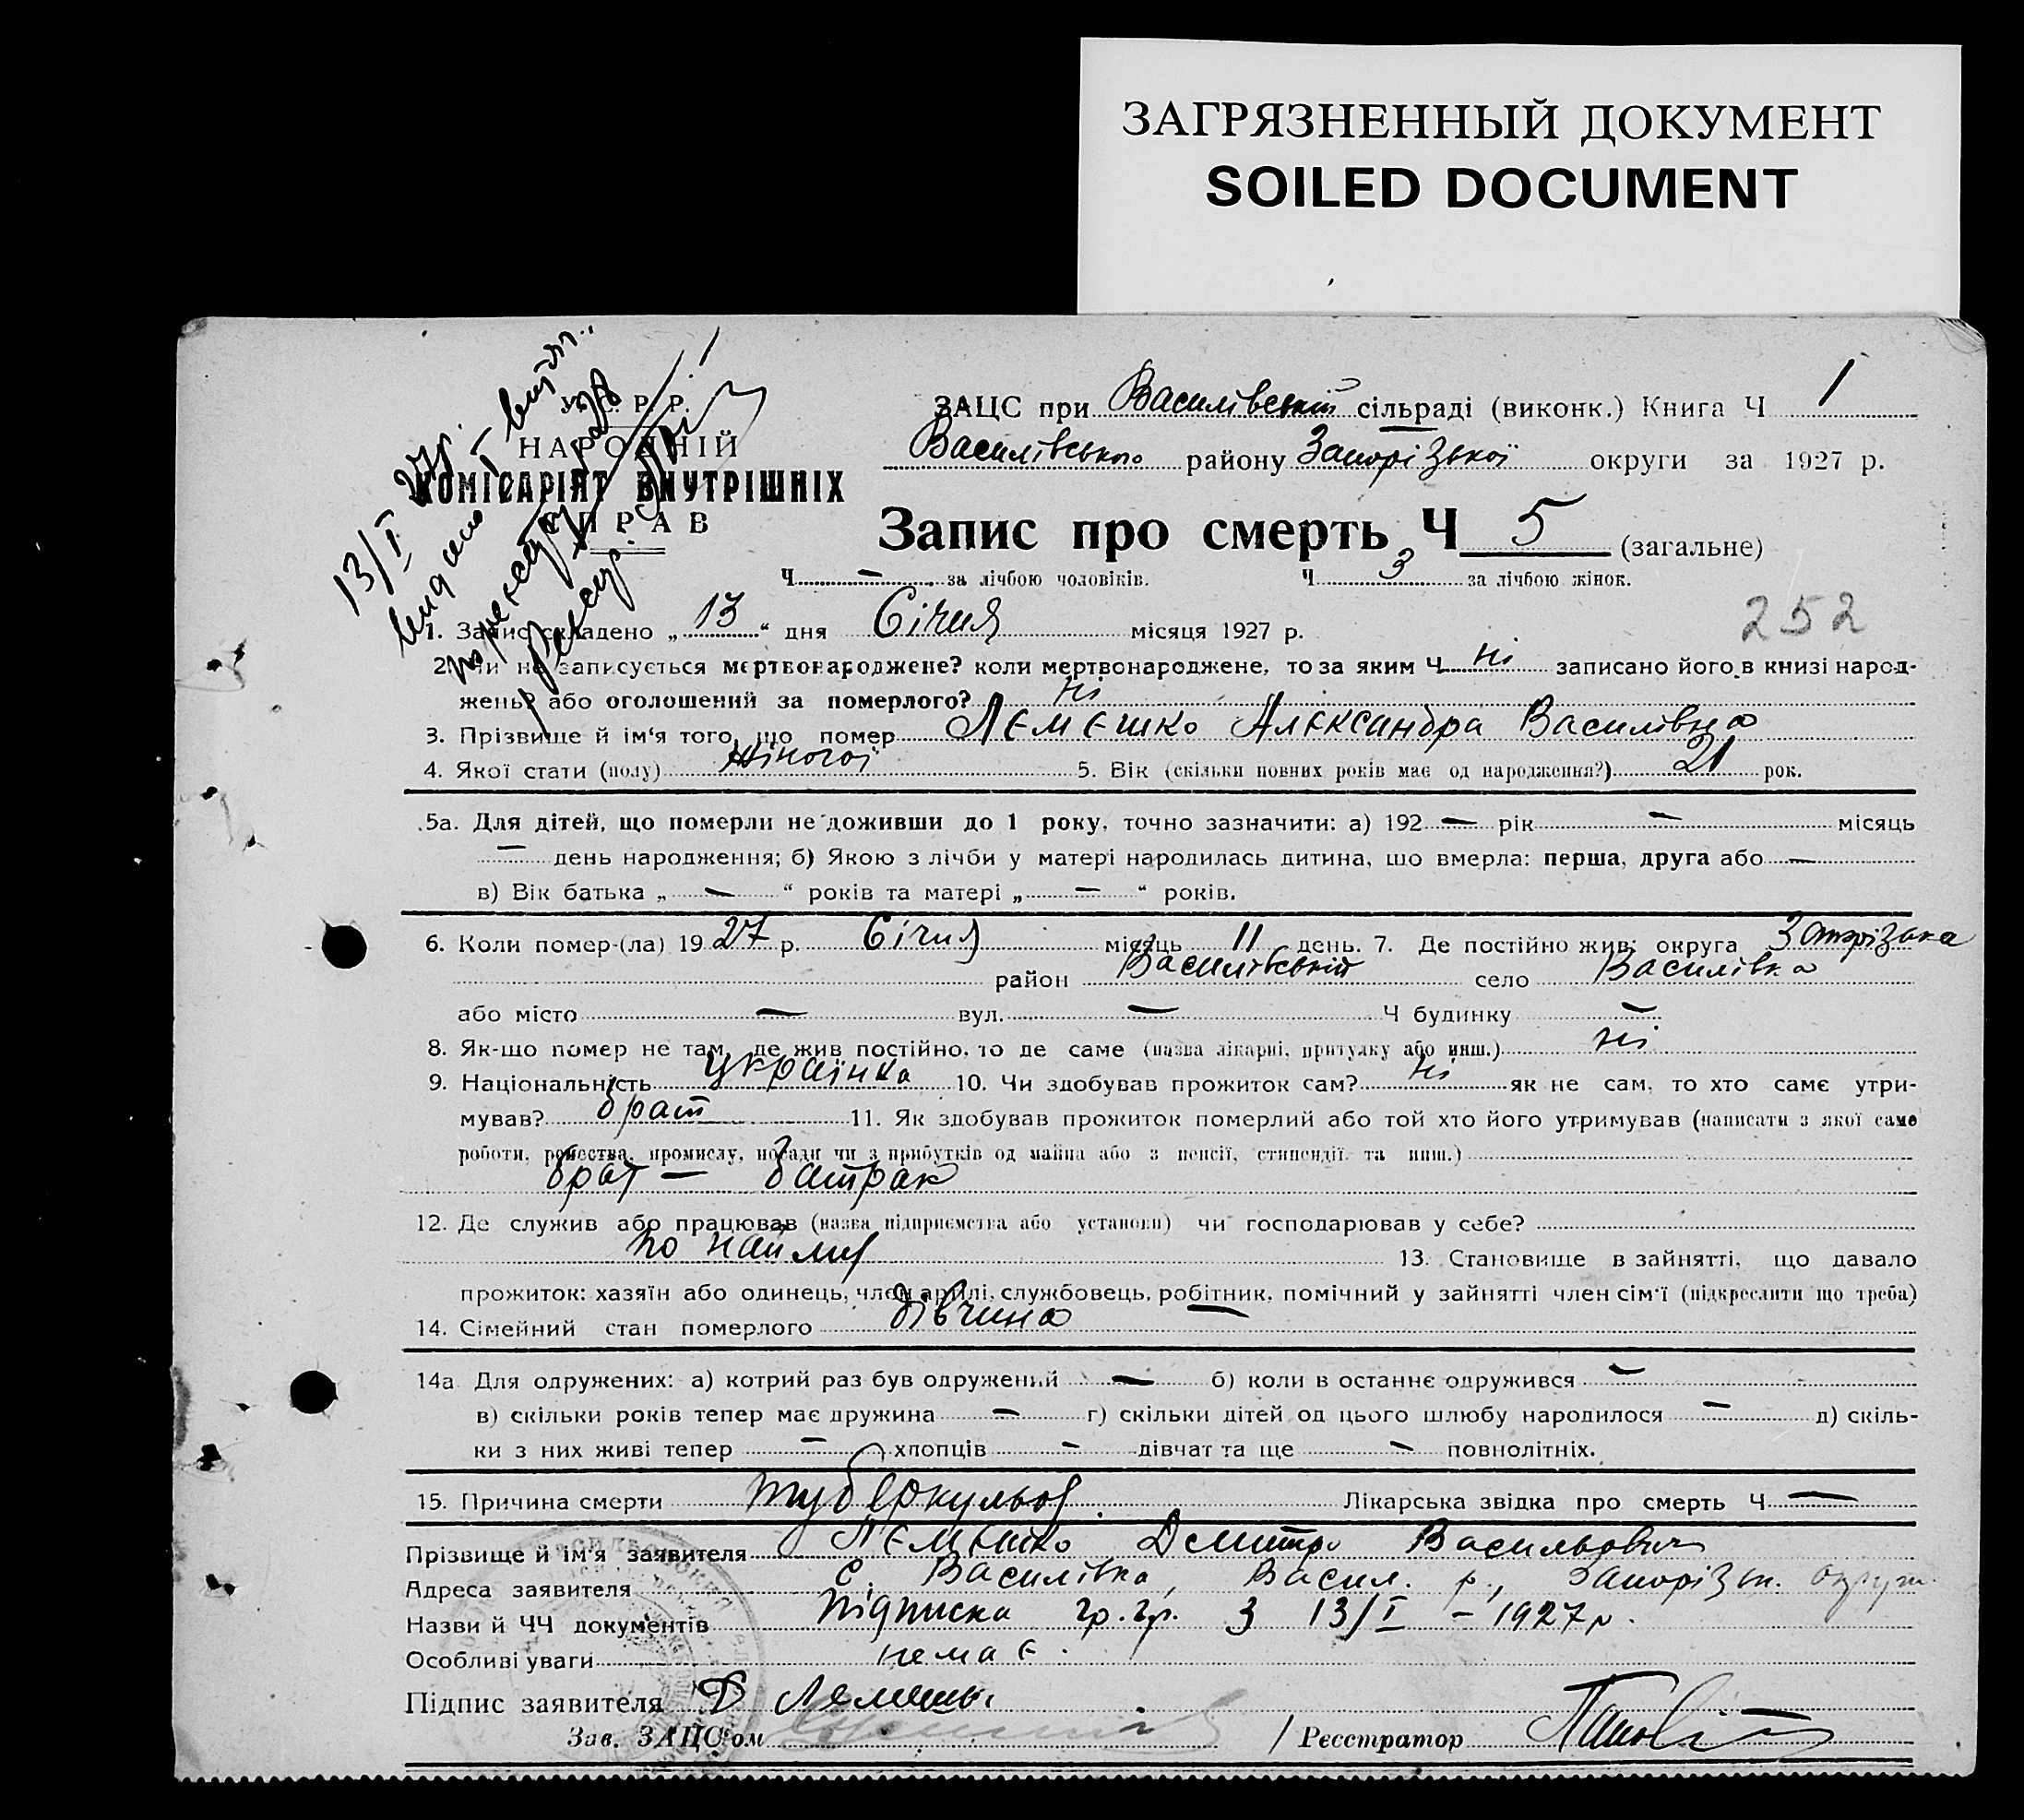 ЗАГРЯЗНЕННЫЙ ДОКУМЕНТ
SOILED DOCUMENT
У. С. Р. Р.
НАРОДНІЙ
КОМІСАРІЯТ ВНУТРІШНІХ
СПРАВ
13/I 27р.
видано I витяг
ЗАЦС при Василівській сільраді (виконк.) Книга Ч 1
Василівського району Запорізької округи за 1927 р.
Запис про смерть Ч 5 (загальне)
Ч — за лічбою чоловіків. Ч 3 за лічбою жінок.
252
1. Запис складено „13“ дня Січня місяця 1927 р.
2. Чи не записується мертвонароджене? коли мертвонароджене, то за яким Ч ні записано його в книзі народ-
жень? або оголошений за померлого? ні
3. Прізвище й ім'я того, що помер Лємєшко Алєксандра Василівна
4. Якої стати (полу) жіночої 5. Вік (скільки повних років має од народження?) 21 рок.
5а. Для дітей, що померли не доживши до 1 року, точно зазначити: а) 192 — рік — місяць
— день народження; б) Якою з лічби у матері народилась дитина, що вмерла: перша, друга або —
в) Вік батька „ — “ років та матері „ — “ років.
6. Коли помер-(ла) 1927 р. Січня місяць 11 день. 7. Де постійно жив: округа Запорізька
район Василівській село Василівка
або місто — вул. — Ч будинку —
8. Як-що помер не там, де жив постійно, то де саме (назва лікарні, притулку або инш.) ні
9. Національність українка 10. Чи здобував прожиток сам? ні як не сам, то хто самє утри-
мував? брат 11. Як здобував прожиток померлий або той хто його утримував (написати з якої саме
роботи, ремества, промислу, посади чи з прибутків од майна або з пенсії, стипендії та инш.)
брат — батрак
12. Де служив або працював (назва підприємства або установи) чи господарював у себе?
по найму 13. Становище в зайнятті, що давало
прожиток: хазяїн або одинець, член артілі, службовець, робітник, помічний у зайнятті член сім'ї (підкреслити що треба)
14. Сімейний стан померлого дівчина
14а Для одружених: а) котрий раз був одружений — б) коли в останнє одружився —
в) скільки років тепер має дружина — г) скільки дітей од цього шлюбу народилося — д) скіль-
ки з них живі тепер — хлопців — дівчат та ще — повнолітніх.
15. Причина смерти туберкульоз. Лікарська звідка про смерть Ч —
Прізвище й ім'я заявителя Лємєшко Дмитро Васильович
Адреса заявителя с. Василівка, Васил. р., Запорізьк. округи
Назви й ЧЧ документів підписка гр. гр. з 13/I – 1927 р.
Особливі уваги немає.
Підпис заявителя Д Лемешко
Зав. ЗАЦС'ом / Реєстратор